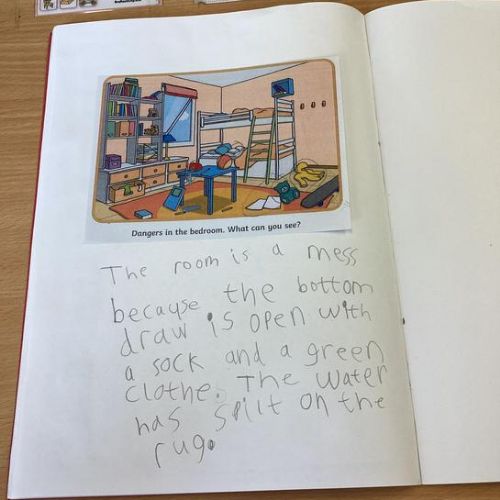 Dangers in the bedroom. What can you see?
The room is a mess
becauyse the bottom
draw is open with
a sock and a green
clothe. The water
has spilt on the
rug.